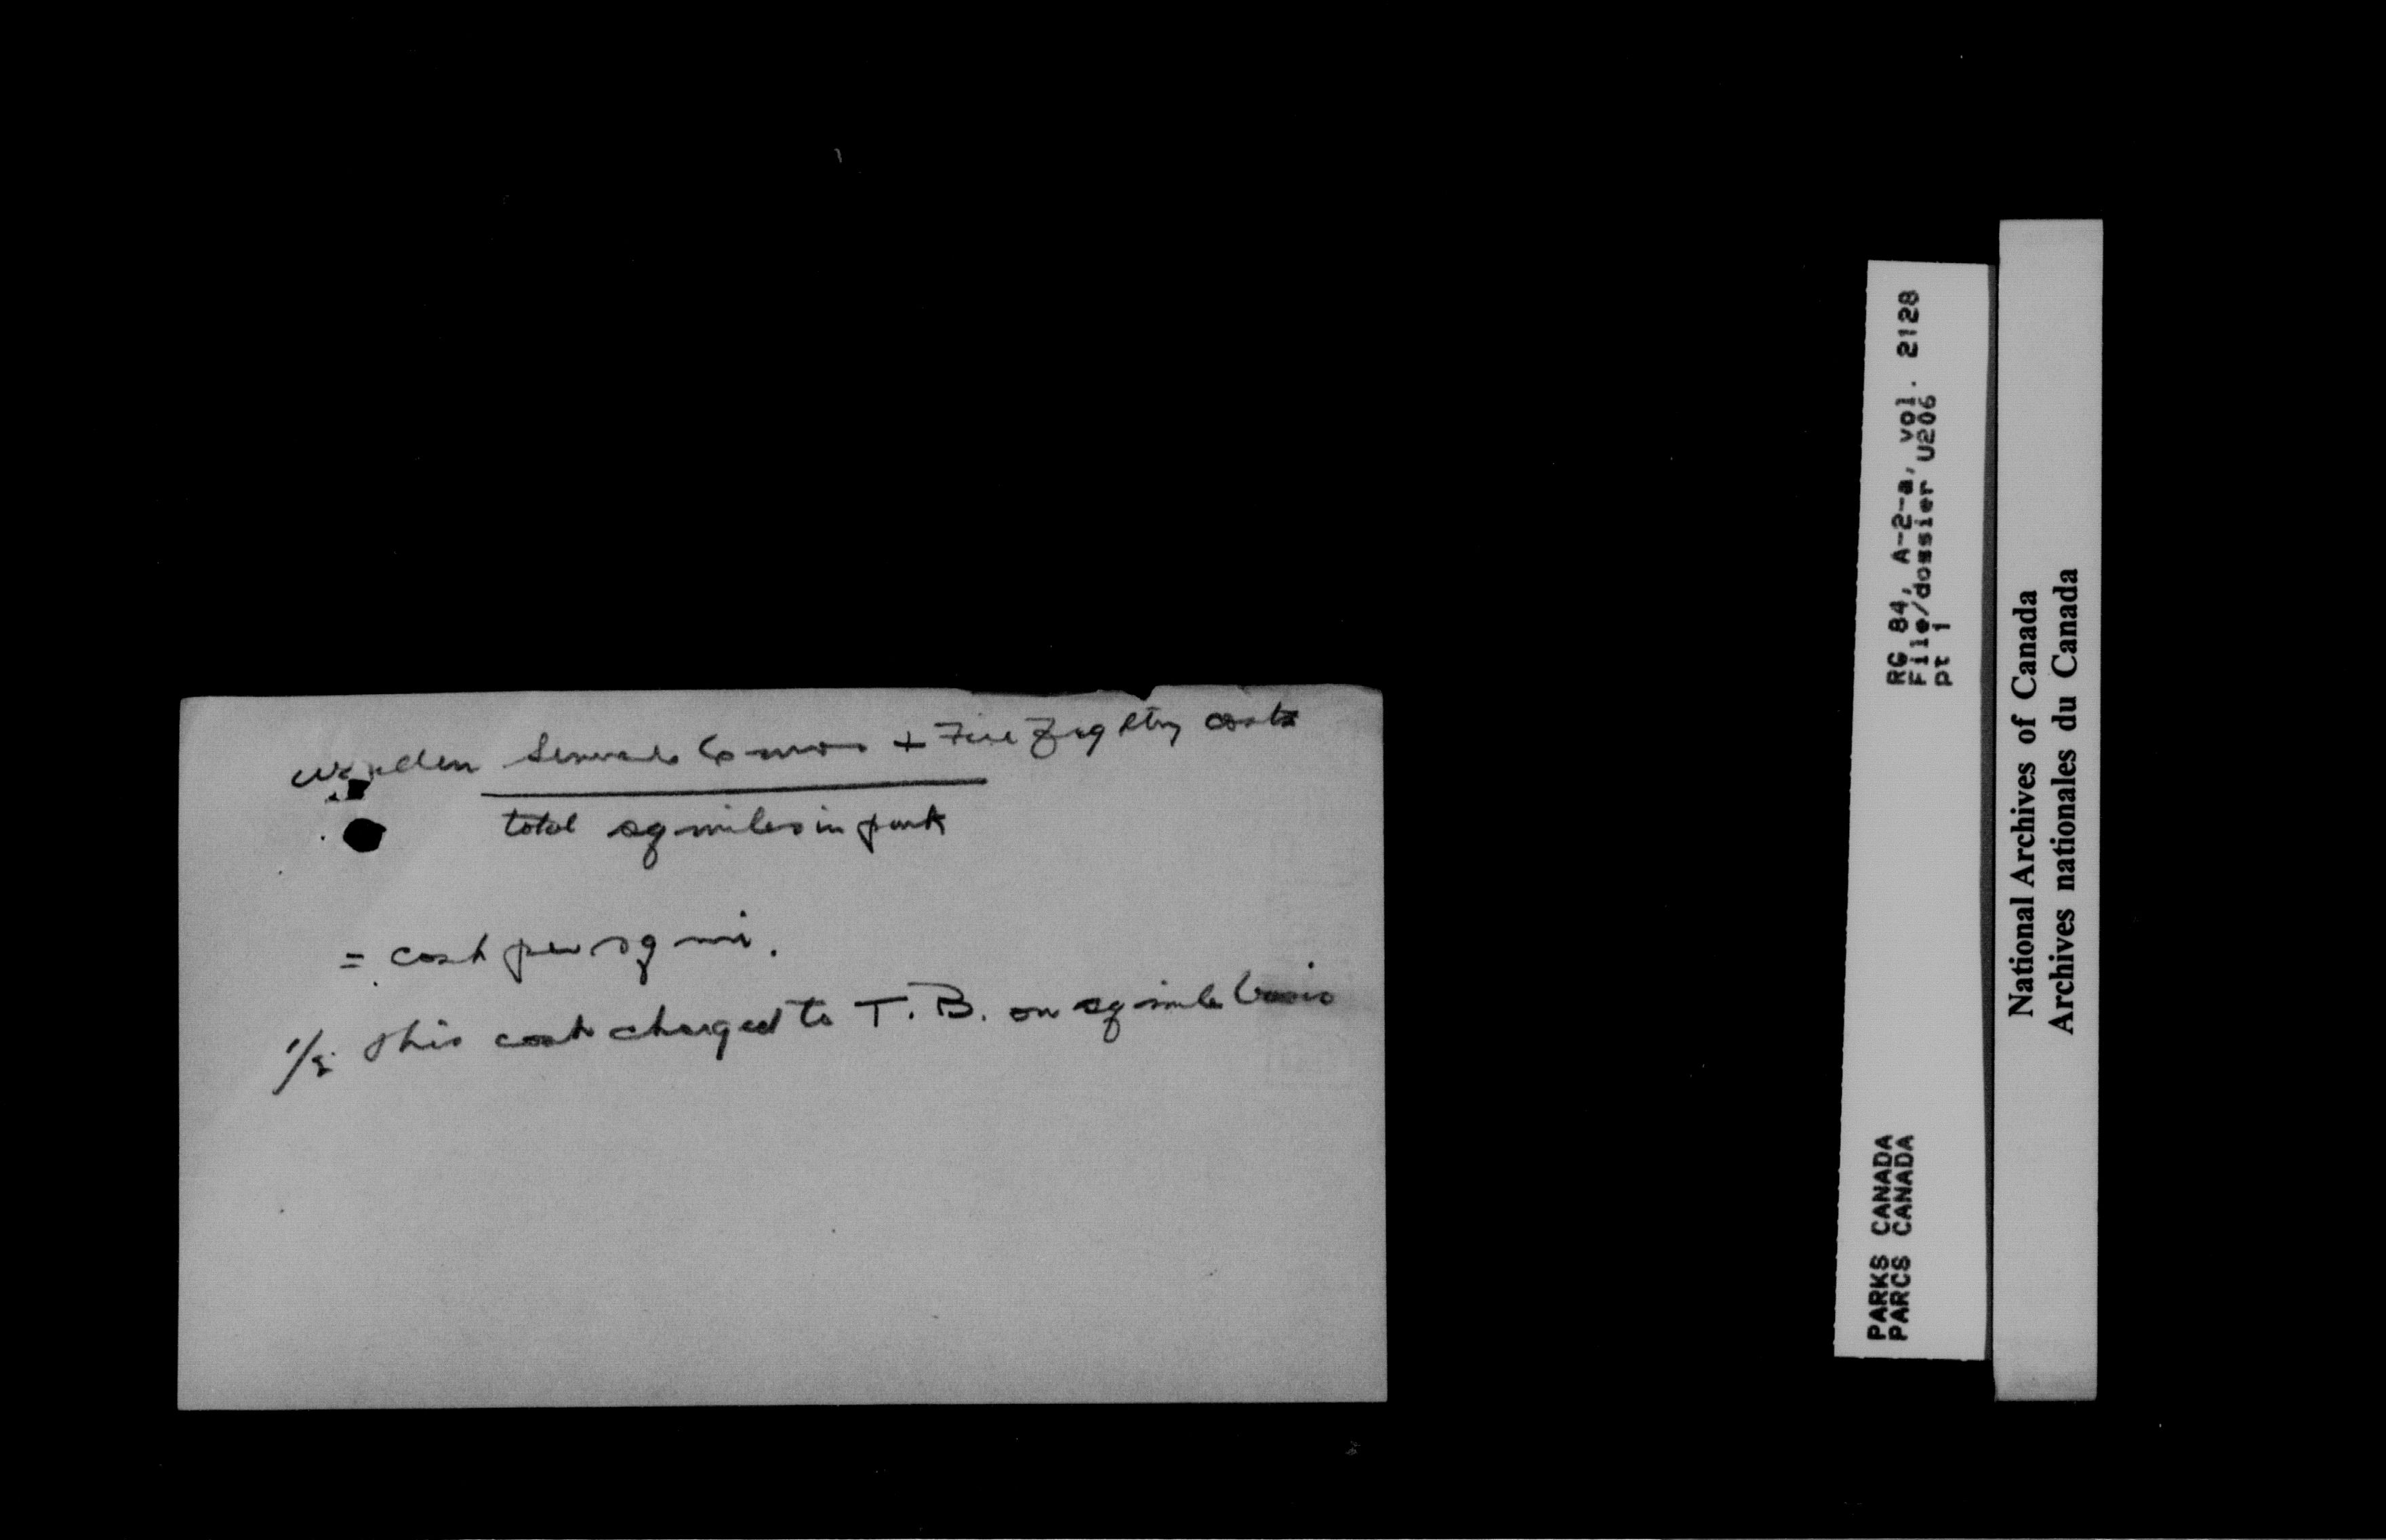 Warden Service 6 mos + Fire Fighting costs
total sq miles in park
= cost per sq mi.
1/2 this cost charged to T.B. on sq mile basis
RG 84, A-2-a, vol. 2128
File/dossier U206
pt 1
PARKS CANADA
PARCS CANADA
National Archives of Canada
Archives nationales du Canada